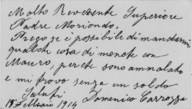 Molto Reverente Superiore
Padre Moriondo,
Prego se è possibile di mandarmi
qualche cosa di moneta con
Mauro, perchè sono ammalato
e mi trovo senza un soldo
Saluti
18 Febbraio 1914 Domenico Carrozzo